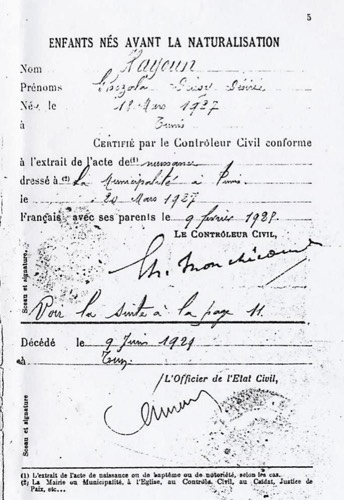 5
ENFANTS NÉS AVANT LA NATURALISATION
Nom Hayoun
Prénoms
Né le 18 Mars 1927
à Tunis
CERTIFIÉ par le Contrôleur Civil conforme
à l'extrait de l'acte de(1) naissance
dressé à (2) La Municipalité à Tunis
le 20 Mars 1927
Français avec ses parents le 9 février 1928
LE CONTRÔLEUR CIVIL,
Ch. Monchicourt
Sceau et signature
Voir la suite à la page 11.
Décédé le 9 Juin 1929
à Tunis
L'Officier de l'Etat Civil,
Sceau et signature
(1) L'extrait de l'acte de naissance ou de baptême ou de notoriété, selon les cas.
(2) La Mairie ou Municipalité, à l'Eglise, au Contrôle Civil, au Caïdat, Justice de
Paix, etc...